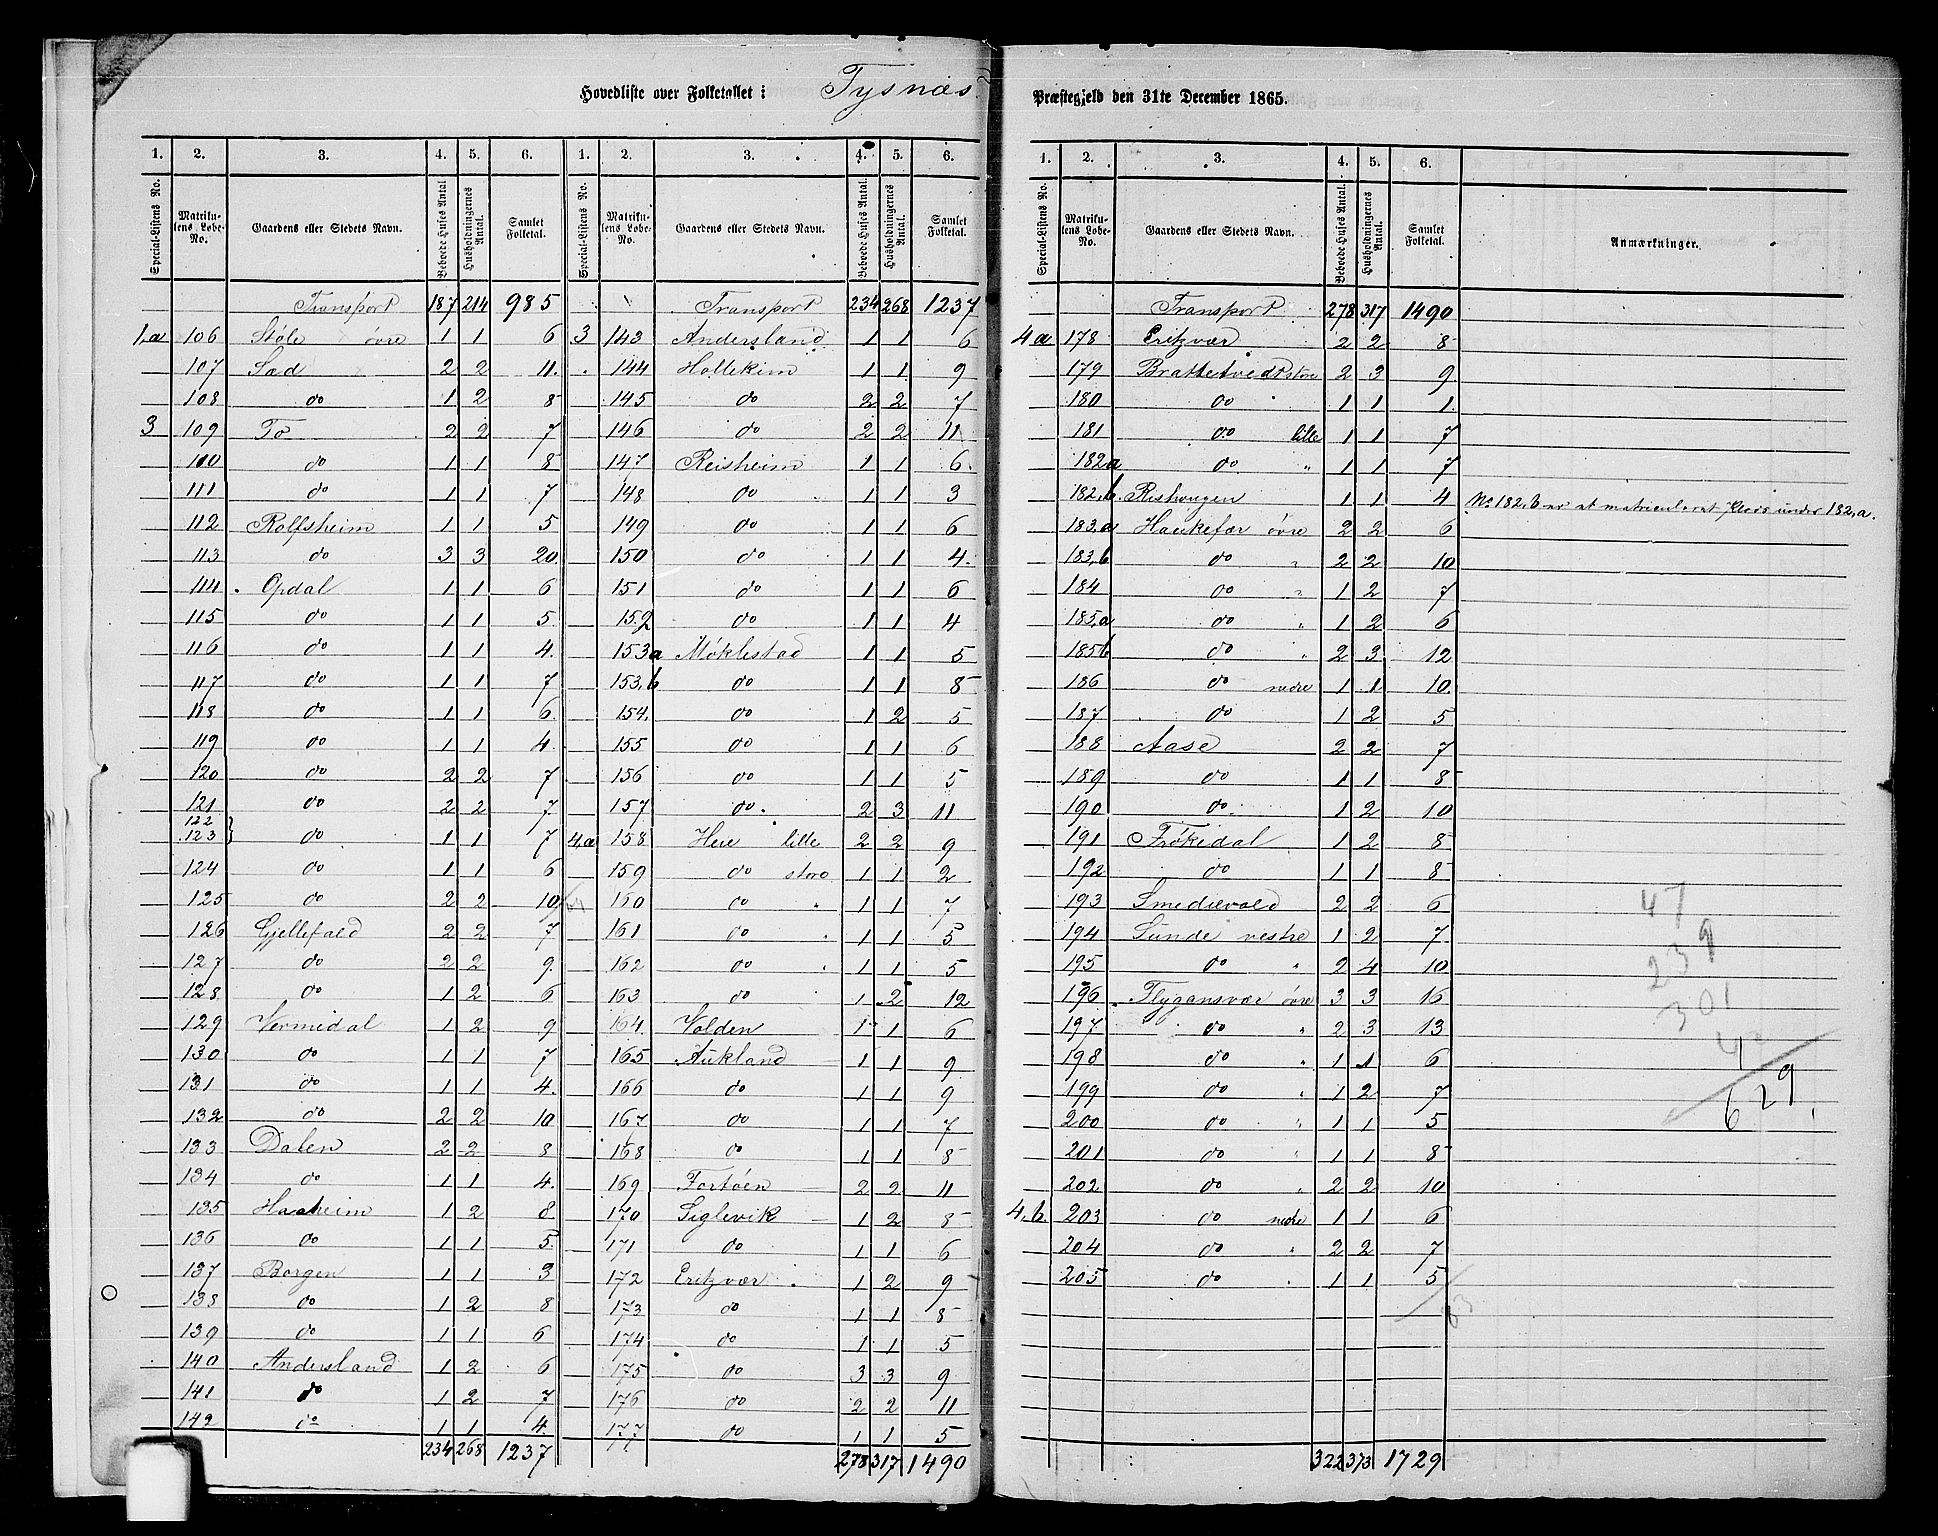 Hovedliste over Folketallet i: Tysnæs Præstegjeld den 31te December 1865.
1. 2. 3. 4. 5. 6. 1. 2. 3. 4. 5. 6.
Special-Listens No. Matrikulens Løbe-No. Gaardens eller Stedets Navn. Beboede Huses Antal Husholdningernes Antal. Samlet Folketal. Special-Listens No. Matrikulens Løbe-No. Gaardens eller Stedets Navn. Beboede Huses Antal. Husholdningernes Antal. Samlet Folketal.
Transport 187 214 985 Transport 234 268 1237
1,a 106 Støle øvre 1 1 6 3 143 Andersland 1 1 6
107 Sad 2 2 11 144 Hollekim 1 1 9
108 do 1 2 8 145 do 2 2 7
3 109 To 2 2 7 146 do 2 2 11
110 do 1 1 8 147 Reisheim 1 1 6.
111 do 1 1 7 148 do 1 1 3
112 Rolfsheim 1 1 5 149 do 1 1 6
113 do 3 3 20 150 do 1 1 4.
114 Opdal 1 1 6 151 do 1 1 6
115 do 1 1 5. 152 do 1 1 4
116 do 1 1 4. 153a Møklestad 1 1 5
117 do 1 1 7 153,b do 1 1 8
118 do 1 1 6. 154. do 1 2 5
119 do 1 1 4. 155 do 1 1 6
120 do 2 2 7 156 do 1 1 5
121 do 2 2 7 157 do. 2 3 11
122
123 } do 1 1 7 4,a 158 Heie lille 2 2 9
124 do 1 1 6 159 do store 1 1 2
125 do 2 2 10 160 do " 1 1 7
126 Gjellefald 2 2 7 161 do " 1 1 5.
127 do 2 2 9. 162 do " 1 1 5
128 do 1 2 6 163 do 1 2 12
129 Vermedal 1 2 9 164. Volden 1 1 6
130 do 1 1 7 165 Aukland 1 1 9
131 do 1 1 4. 166 do 1 1 9
132 do 2 2 10 167 do 1 1 7
133 Dalen 2 2 8 168 do 1 1 8
134 do 1 1 4. 169 Fortøen 2 2 11
135 Haaheim 1 2 8 170 Siglevik 1 2 8
136 do 1 1 5. 171 do 1 1 6
137 Borgen 1 1 3 172 Eritzvær 1 2 9
138 do 1 2 8 173 do 1 1 8
139 do 1 1 6 174 do 1 1 5
140 Andersland 1 2 6 175 do 3 3 9
141 do 1 2 7 176 do 2 2 11
142 do 1 1 4. 177 do 1 1 5
234 268 1237 278 317 1490
1. 2. 3. 4. 5. 6.
Special-Listens No. Matrikulens Løbe-No. Gaardens eller Stedets Navn. Beboede Huses Antal. Husholdningernes Antal. Samlet Folketal. Anmærkninger.
Transport 278 317 1490
4a 178 Eritzvær 2 2 8
179 Brattetvedt store 2 3 9
180 do 1 1 1.
181 do lille 1 1 7
182a do " 1 1 7
182,b. Rishougen 1 1 4 No 182,b er at matriculeret Plads under 182,a.
183,a Haukefær øvre 2 2 6
183,b do " 2 2 10
184 do " 1 2 7
185,a do " 1 2 6
185b do " 2 3 12
186 do nedre 1 1 10.
187 do 1 2 5
188 Aase 2 2 7
189 do 1 1 8
190 do. 1 2 10
191 Frøkedal 1 2 8
192 do 1 1 8
193 Smedævold 2 2 6
194 Sunde vestre 1 2 7
195 do " 2 4 10
196 Flygansvær øvre 3 3 16
197 do " 2 3 13
198 do " 1 1 6
199 do " 1 2 7
200 do " 1 1 5
201 do " 1 1 8
202 do " 2 2 10
4,b. 203 do nedre 1 1 6
204 do " 2 2 7
205 do " 1 1 5
322 373 1729
47
239
301
629.